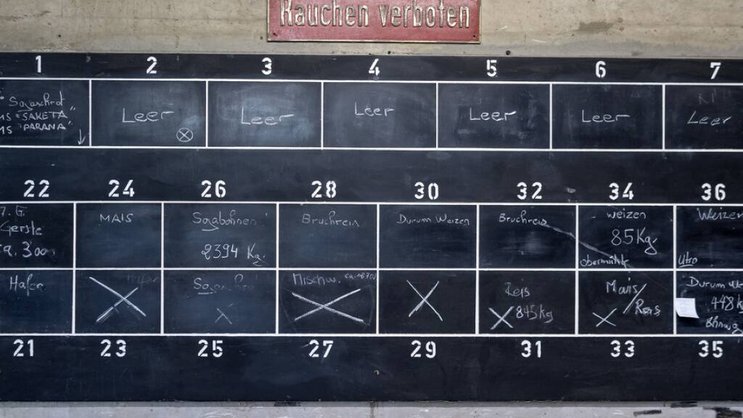 Rauchen verboten
1 2 3 4 5 6 7
Sojaschrot
MS "SAKETA"
MS "PARANA"
Leer
Leer
Leer
Leer
Leer
Leer
22 24 26 28 30 32 34 36
Gerste
MAIS
Sojabohnen
2394 Kg.
Bruchreis
Durum Weizen
Bruchreis
weizen
85 Kg.
obermühle
Weizen
Hafer
Mischw.
Reis
845 Kg
Mais/
Reis
Durum
448 k
21 23 25 27 29 31 33 35